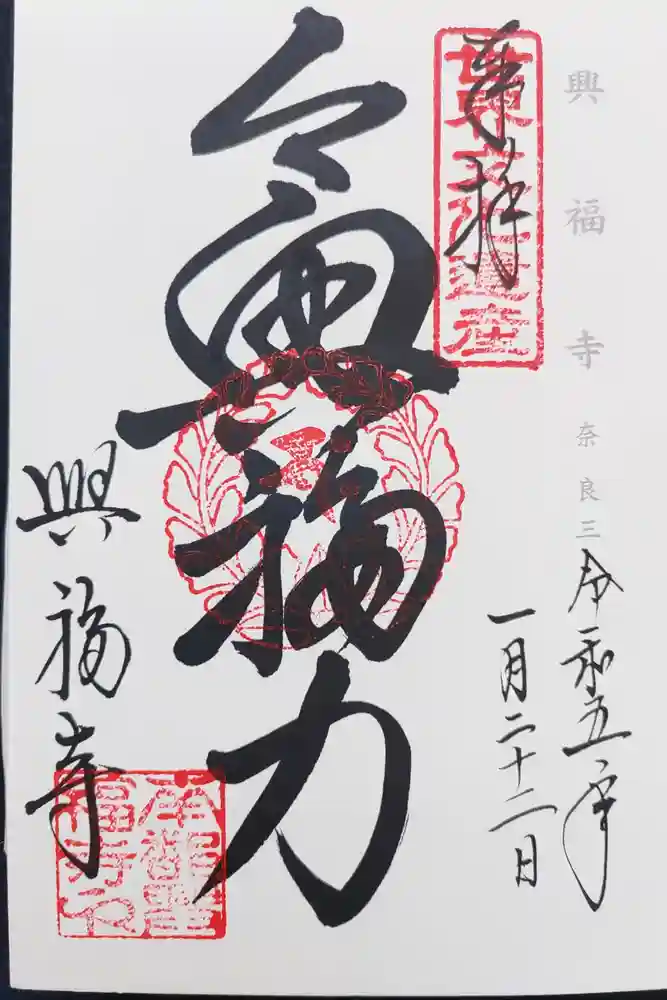 興福寺 奈良三
令和五年
一月二十二日
奉拝
世界文化遺産
令興福力
興福寺